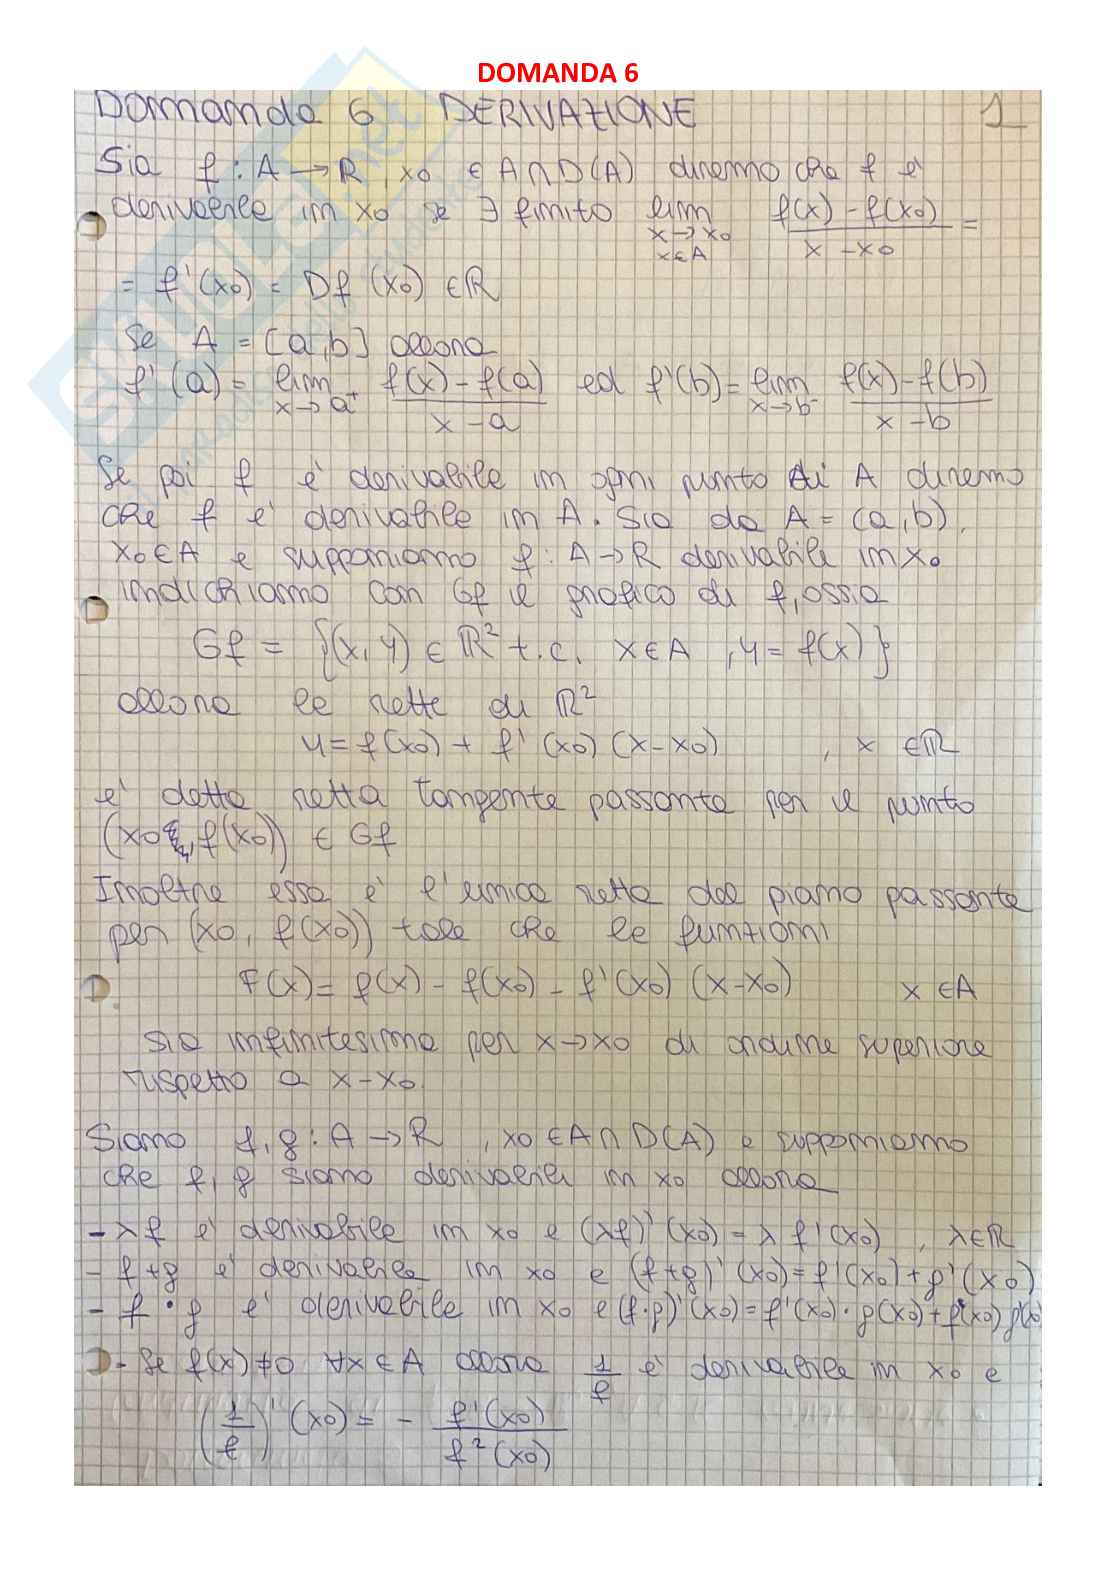 DOMANDA 6
Domanda 6 DERIVAZIONE 1
Sia f : A → R, x0 ∈ A ∩ D(A) diremo che f è
derivabile in x0 se ∃ finito lim x→x0 x∈A f(x) - f(x0) / x - x0 =
= f'(x0) = Df (x0) ∈ ℝ
Se A = [a,b] allora
f'(a) = lim x→a⁺ f(x) - f(a) / x - a ed f'(b) = lim x→b⁻ f(x) - f(b) / x - b
Se poi f è derivabile in ogni punto di A diremo
che f è derivabile in A. Sia da A = (a,b),
x0 ∈ A e supponiamo f : A → R derivabile in x0
indichiamo con Gf il grafico di f, ossia
Gf = {(x, y) ∈ ℝ² t.c. x ∈ A , y = f(x)}
allora le rette di ℝ²
y = f(x0) + f'(x0) (x-x0) , x ∈ ℝ
è detta retta tangente passante per il punto
(x0, f(x0)) ∈ Gf
Inoltre essa è l'unica retta del piano passante
per (x0, f(x0)) tale che le funzioni
F(x) = f(x) - f(x0) - f'(x0) (x-x0) x ∈ A
sia infinitesima per x→x0 di ordine superiore
rispetto a x-x0.
Siano f, g : A → R , x0 ∈ A ∩ D(A) e supponiamo
che f, g siano derivabili in x0 allora
- λf è derivabile in x0 e (λf)'(x0) = λ f'(x0) , λ∈ℝ
- f+g è derivabile in x0 e (f+g)'(x0) = f'(x0) + g'(x0)
- f · g è derivabile in x0 e (f·g)'(x0) = f'(x0) · g(x0) + f(x0) g'(x0)
- Se f(x) ≠ 0 ∀x ∈ A allora 1/f è derivabile in x0 e
(1/f)' (x0) = - f'(x0) / f²(x0)